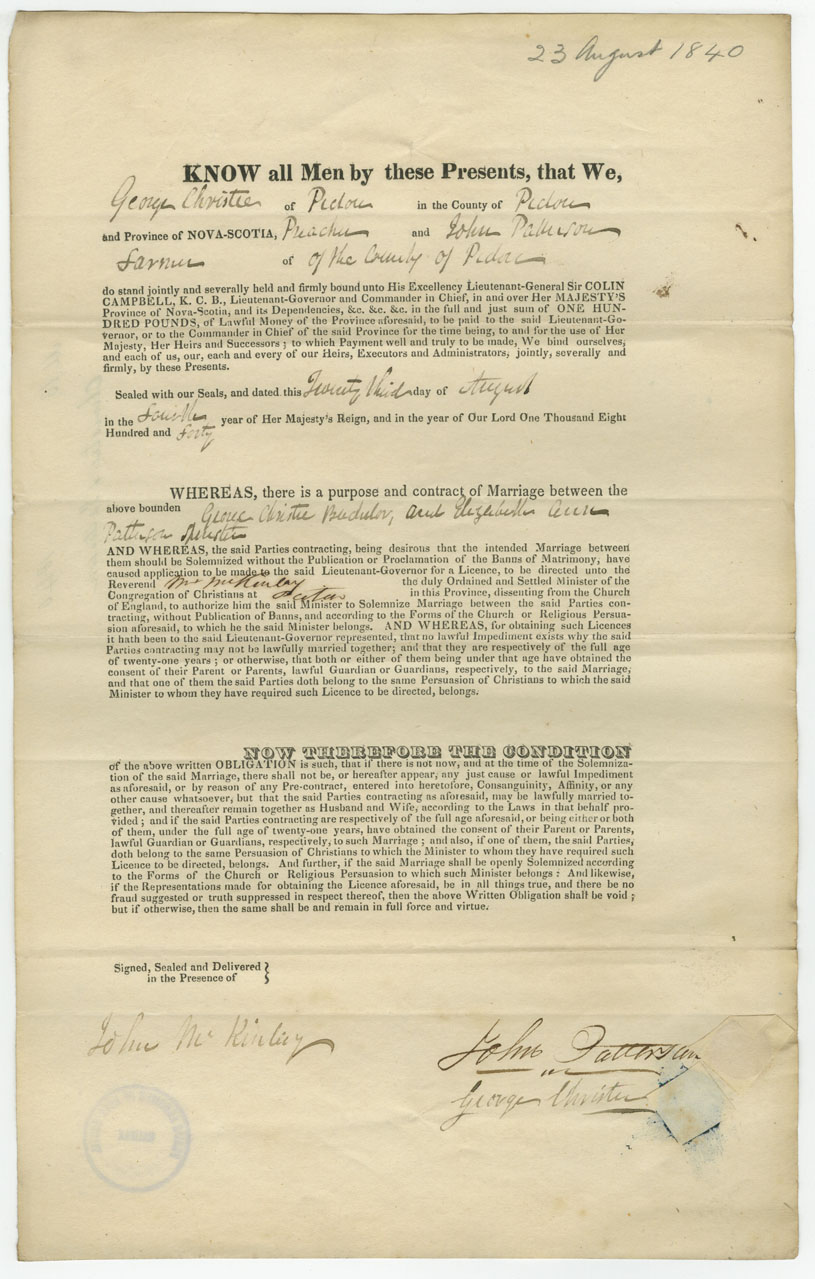 23 August 1840
KNOW all Men by these Presents, that We,
George Christie of Pictou in the County of Pictou
and Province of NOVA-SCOTIA, Preacher and John Patterson
Farmer of of the County of Pictou
do stand jointly and severally held and firmly bound unto His Excellency Lieutenant-General Sir COLIN
CAMPBELL, K. C. B., Lieutenant-Governor and Commander in Chief, in and over Her MAJESTY'S
Province of Nova-Scotia, and its Dependencies, &c. &c. &c. in the full and just sum of ONE HUN-
DRED POUNDS, of Lawful Money of the Province aforesaid, to be paid to the said Lieutenant-Go-
vernor, or to the Commander in Chief of the said Province for the time being, to and for the use of Her
Majesty, Her Heirs and Successors ; to which Payment well and truly to be made, We bind ourselves,
and each of us, our, each and every of our Heirs, Executors and Administrators, jointly, severally and
firmly, by these Presents.
Sealed with our Seals, and dated this Twenty third day of August
in the Fourth year of Her Majesty's Reign, and in the year of Our Lord One Thousand Eight
Hundred and Forty
WHEREAS, there is a purpose and contract of Marriage between the
above bounden George Christie Bachelor, and Elizabeth Ann
Patterson Spinster
AND WHEREAS, the said Parties contracting, being desirous that the intended Marriage between
them should be Solemnized without the Publication or Proclamation of the Banns of Matrimony, have
caused application to be made to the said Lieutenant-Governor for a Licence, to be directed unto the
Reverend Mr McKinlay the duly Ordained and Settled Minister of the
Congregation of Christians at Pictou in this Province, dissenting from the Church
of England, to authorize him the said Minister to Solemnize Marriage between the said Parties con-
tracting, without Publication of Banns, and according to the Forms of the Church or Religious Persua-
sion aforesaid, to which he the said Minister belongs. AND WHEREAS, for obtaining such Licences
it hath been to the said Lieutenant-Governor represented, that no lawful Impediment exists why the said
Parties contracting may not be lawfully married together; and that they are respectively of the full age
of twenty-one years ; or otherwise, that both or either of them being under that age have obtained the
consent of their Parent or Parents, lawful Guardian or Guardians, respectively, to the said Marriage,
and that one of them the said Parties doth belong to the same Persuasion of Christians to which the said
Minister to whom they have required such Licence to be directed, belongs.
NOW THEREFORE THE CONDITION
of the above written OBLIGATION is such, that if there is not now, and at the time of the Solemniza-
tion of the said Marriage, there shall not be, or hereafter appear, any just cause or lawful Impediment
as aforesaid, or by reason of any Pre-contract, entered into heretofore, Consanguinity, Affinity, or any
other cause whatsoever, but that the said Parties contracting as aforesaid, may be lawfully married to-
gether, and thereafter remain together as Husband and Wife, according to the Laws in that behalf pro-
vided ; and if the said Parties contracting are respectively of the full age aforesaid, or being either or both
of them, under the full age of twenty-one years, have obtained the consent of their Parent or Parents,
lawful Guardian or Guardians, respectively, to such Marriage ; and also, if one of them, the said Parties,
doth belong to the same Persuasion of Christians to which the Minister to whom they have required such
Licence to be directed, belongs. And further, if the said Marriage shall be openly Solemnized according
to the Forms of the Church or Religious Persuasion to which such Minister belongs : And likewise,
if the Representations made for obtaining the Licence aforesaid, be in all things true, and there be no
fraud suggested or truth suppressed in respect thereof, then the above Written Obligation shall be void ;
but if otherwise, then the same shall be and remain in full force and virtue.
Signed, Sealed and Delivered }
in the Presence of
John McKinlay
John Patterson
George Christie